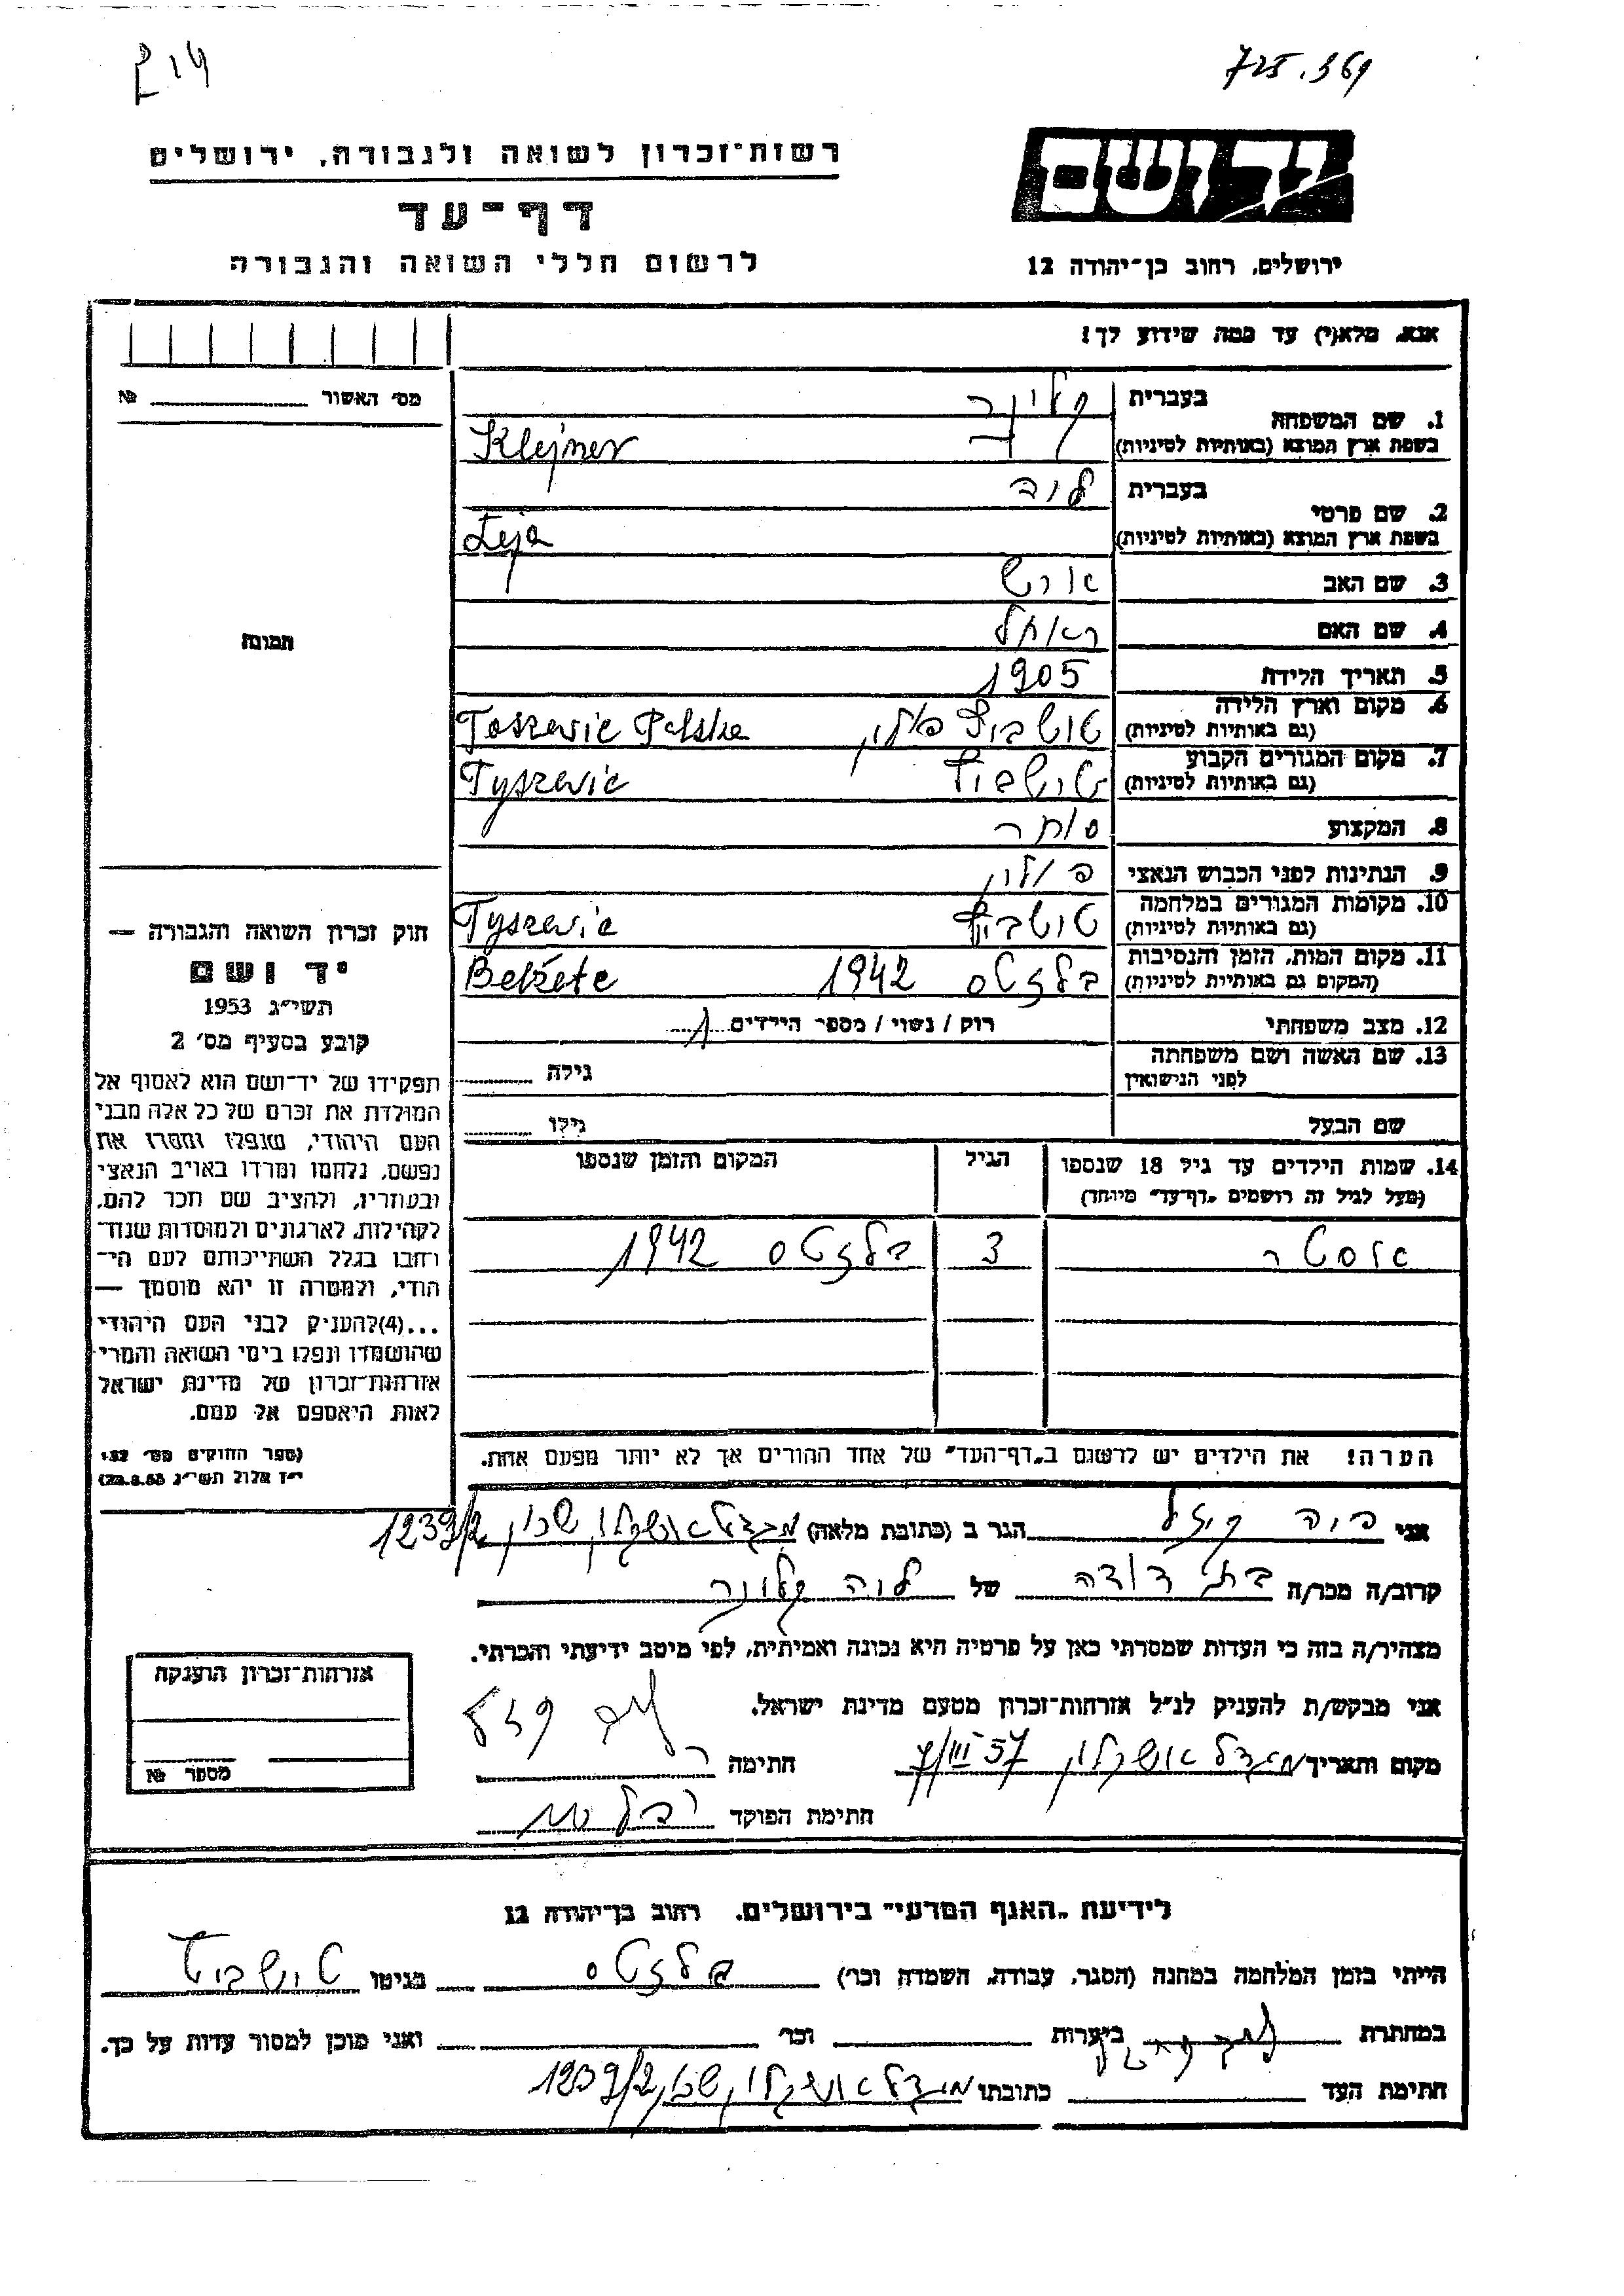 725.369
רשות-זכרון לשואה ולגבורה, ירושלים
דף-עד
לרשום חללי השואה והגבורה
ידושם
ירושלים, רחוב בן-יהודה 12
אנא, מלא(י) עד כמה שידוע לך!
מס׳ האשור № 
1. שם המשפחה
בעברית קלינר
בשפת ארץ המוצא (באותיות לטיניות) Klejner
2. שם פרטי
בעברית ליה
בשפת ארץ המוצא (באותיות לטיניות) Leja
3. שם האב
4. שם האם ראחל
5. תאריך הלידה 1905
6. מקום וארץ הלידה
(גם באותיות לטיניות) טושביץ פולין Toszewic Polska
7. מקום המגורים הקבוע
(גם באותיות לטיניות) טישביץ Tyszewic
8. המקצוע סוחר
9. הנתינות לפני הכבוש הנאצי פולין
10. מקומות המגורים במלחמה
(גם באותיות לטיניות) טושביץ Tyszewic
11. מקום המות, הזמן והנסיבות
(המקום גם באותיות לטיניות) בלזטס 1942 Bełżete
12. מצב משפחתי רוק / נשוי / מספר הילדים 1
13. שם האשה ושם משפחתה
לפני הנישואין גילה
שם הבעל גילו
14. שמות הילדים עד גיל 18 שנספו
(מעל לגיל זה רושמים „דף-עד״ מיוחד)
הגיל
המקום והזמן שנספו
אסטר 3 בלזטס 1942
הערה! את הילדים יש לרשום ב„דף-העד״ של אחד ההורים אך לא יותר מפעם אחת.
תמונה
חוק זכרון השואה והגבורה —
יד ושם
תשי״ג 1953
קובע בסעיף מס׳ 2
תפקידו של יד-ושם הוא לאסוף אל
המולדת את זכרם של כל אלה מבני
העם היהודי, שנפלו ומסרו את
נפשם, נלחמו ומרדו באויב הנאצי
ובעוזריו, ולהציב שם וזכר להם,
לקהילות, לארגונים ולמוסדות שנח־
רבו בגלל השתייכותם לעם הי־
הודי, ולמטרה זו יהא מוסמך —
...(4) להעניק לבני העם היהודי
שהושמדו ונפלו בימי השואה והמרי
אזרחות-זכרון של מדינת ישראל
לאות היאספם אל עמם.
(ספר החוקים מס׳ 132
י״ז אלול תשי״ג 28.8.53)
אני קיזל הגר ב (כתובת מלאה) מגדל אשקלון שכון 1239/2
קרוב/ה מכר/ה בת דודה של ליה קלינר
מצהיר/ה בזה כי העדות שמסרתי כאן על פרטיה היא נכונה ואמיתית, לפי מיטב ידיעתי והכרתי.
אני מבקש/ת להעניק לנ״ל אזרחות-זכרון מטעם מדינת ישראל.
מקום ותאריך מגדל אשקלון 7/III 57 חתימה
חתימת הפוקד
אזרחות-זכרון הוענקה
מספר №
לידיעת „האגף המדעי״ בירושלים, רחוב בן-יהודה 12
הייתי בזמן המלחמה במחנה (הסגר, עבודה, השמדה וכר׳) בלזטס בגיטו טושביץ
במחתרת ביערות וכר׳ ואני מוכן למסור עדות על כך.
חתימת העד כתובתו מגדל אשקלון, שכון 1239/2